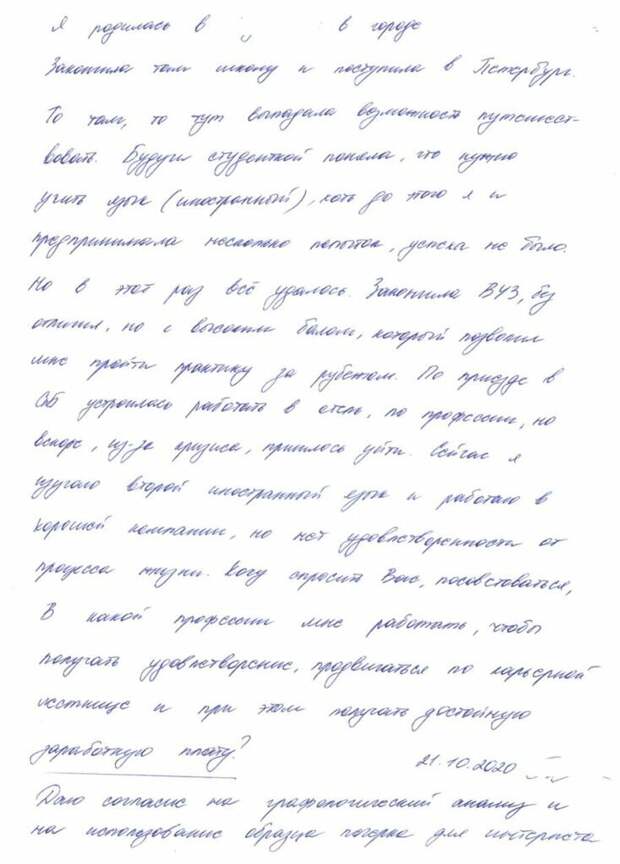 Я родилась в в городе
Закончила там школу и поступила в Петербург.
То там, то тут выпадала возможность путешест-
вовать. Будучи студенткой поняла, что нужно
учить язык (иностранный), хоть до этого я и
предпринимала несколько попыток, успеха не было.
Но в этот раз всё удалось. Закончила ВУЗ, без
отличия, но с высоким балом, который позволил
мне пройти практику за рубежом. По приезде в
СПБ устроилась работать в отель, по профессии, но
вскоре, из-за кризиса, пришлось уйти. Сейчас я
изучаю второй иностранный язык и работаю в
хорошей компании, но нет удовлетворенности от
процесса жизни. Хочу спросить Вас, посоветоваться,
В какой професcии мне работать, чтобы
получать удовлетворение, продвигаться по карьерной
лестнице и при этом получать достойную
заработную плату?
21.10.2020
Даю согласие на графологический анализ и
на использование образца почерка для интернета